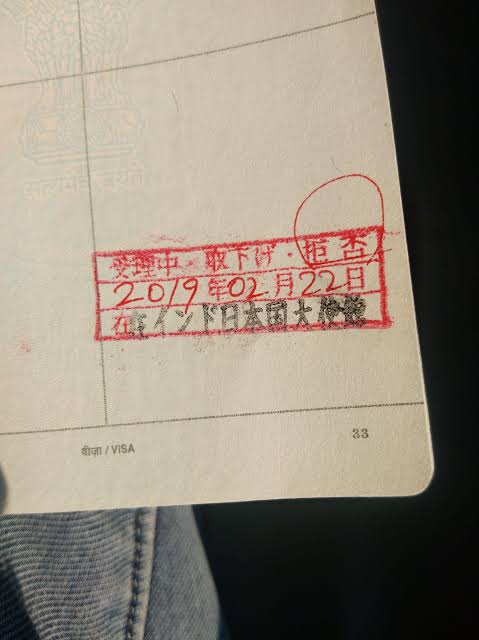 सत्यमेव जयते
受理中・取下げ・拒否
2019年02月22日
在インド日本国大使館
वीज़ा / VISA
33